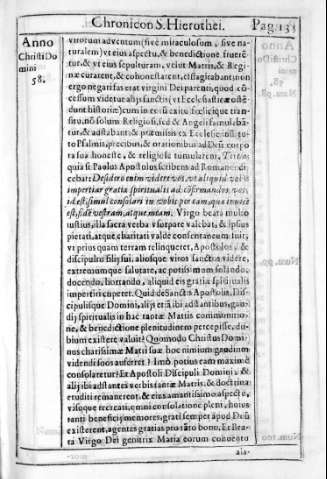 Chronicon S. Hierothei. Pag. 133
Anno
Christi Do
mini
58.
virorum adventum (sive miraculosum, sive na-
turalem) vt eius aspectu, & benedictione fruerē-
tur, & vt eius sepulturam, velut Matris, & Regi-
næ curarent, & cohonestarent, efflagitabant: non
ergo negari fas erat virgini Deiparenti, quod cō-
cessum videtur alijs sanctis (vt Ecclesiasticæ ostē-
dunt historiæ) cum in eorū exitu
tu, nō solum Religiosi, sed & Angeli famulebā-
tur, & adstabant; & præmissis ex Ecclesiæ
to Psalmis, precibus, & orationibus ad Deū corpo
ra sua honeste, & religiose tumularent. Tertio;
quia si Paulus Apostolus scribens ad Romanos di-
cebat: Desidero enim videre vos, vt aliquid vobis
impertiar gratiæ spiritualis ad cōfirmandos vos,
id est, simul consolari in vobis per eam, quæ invicē
est, fidē vestram, atque meam. Virgo beata multo
iustius, illa sacra verba vsurpare valebat, & ipsius
pietati, atque charitati valde consentaneum fuit,
vt prius quam terram relinqueret, Apostolos, &
discipulos filij sui, aliosque viros sanctos videre,
extremumque salutare, ac potissimum solando,
docendo, hortando, aliquid eis gratiæ spiritualis
impertiri cuperet. Quid de Sanctis Apostolis, Dis-
cipulisque Domini, alijs etiā ibi adstantibus, gau-
dij spiritualis in hac tantæ Matris communitio-
ne, & benedictione plenitudinem percepisse, du-
bium existere valuit? Quomodo Christus Domi-
nus charissimæ Matri suæ hoc nimium gaudium
videndi suos auferret? Imò potius eam maximè
consolaretur? Et Apostoli Discipuli Domini, &
alij ibi adstantes verbis tantæ Matris, & doctrina
eruditi remanerent, & eius amantissimo aspectu,
visuque recreati, omni consolatione pleni, huius
tanti beneficij memores, grati semper apud Deū
existerent, agentes gratias pro tāto bono. Et Bea-
ta Virgo Dei genitrix Maria eorum conventu